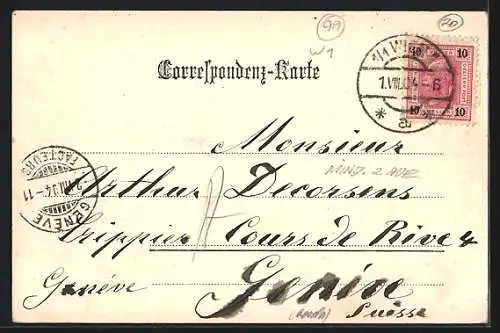 99
20
W1
Correspondenz-Karte
1/1 WIEN
1.VIII.04-6
* a *
10 10
10 10
Monsieur
GENÈVE
2.VIII.04-11
FACTEURS
Arthur Decorsens
Trippier Cours de Rive 4
Genève Genève
Suisse